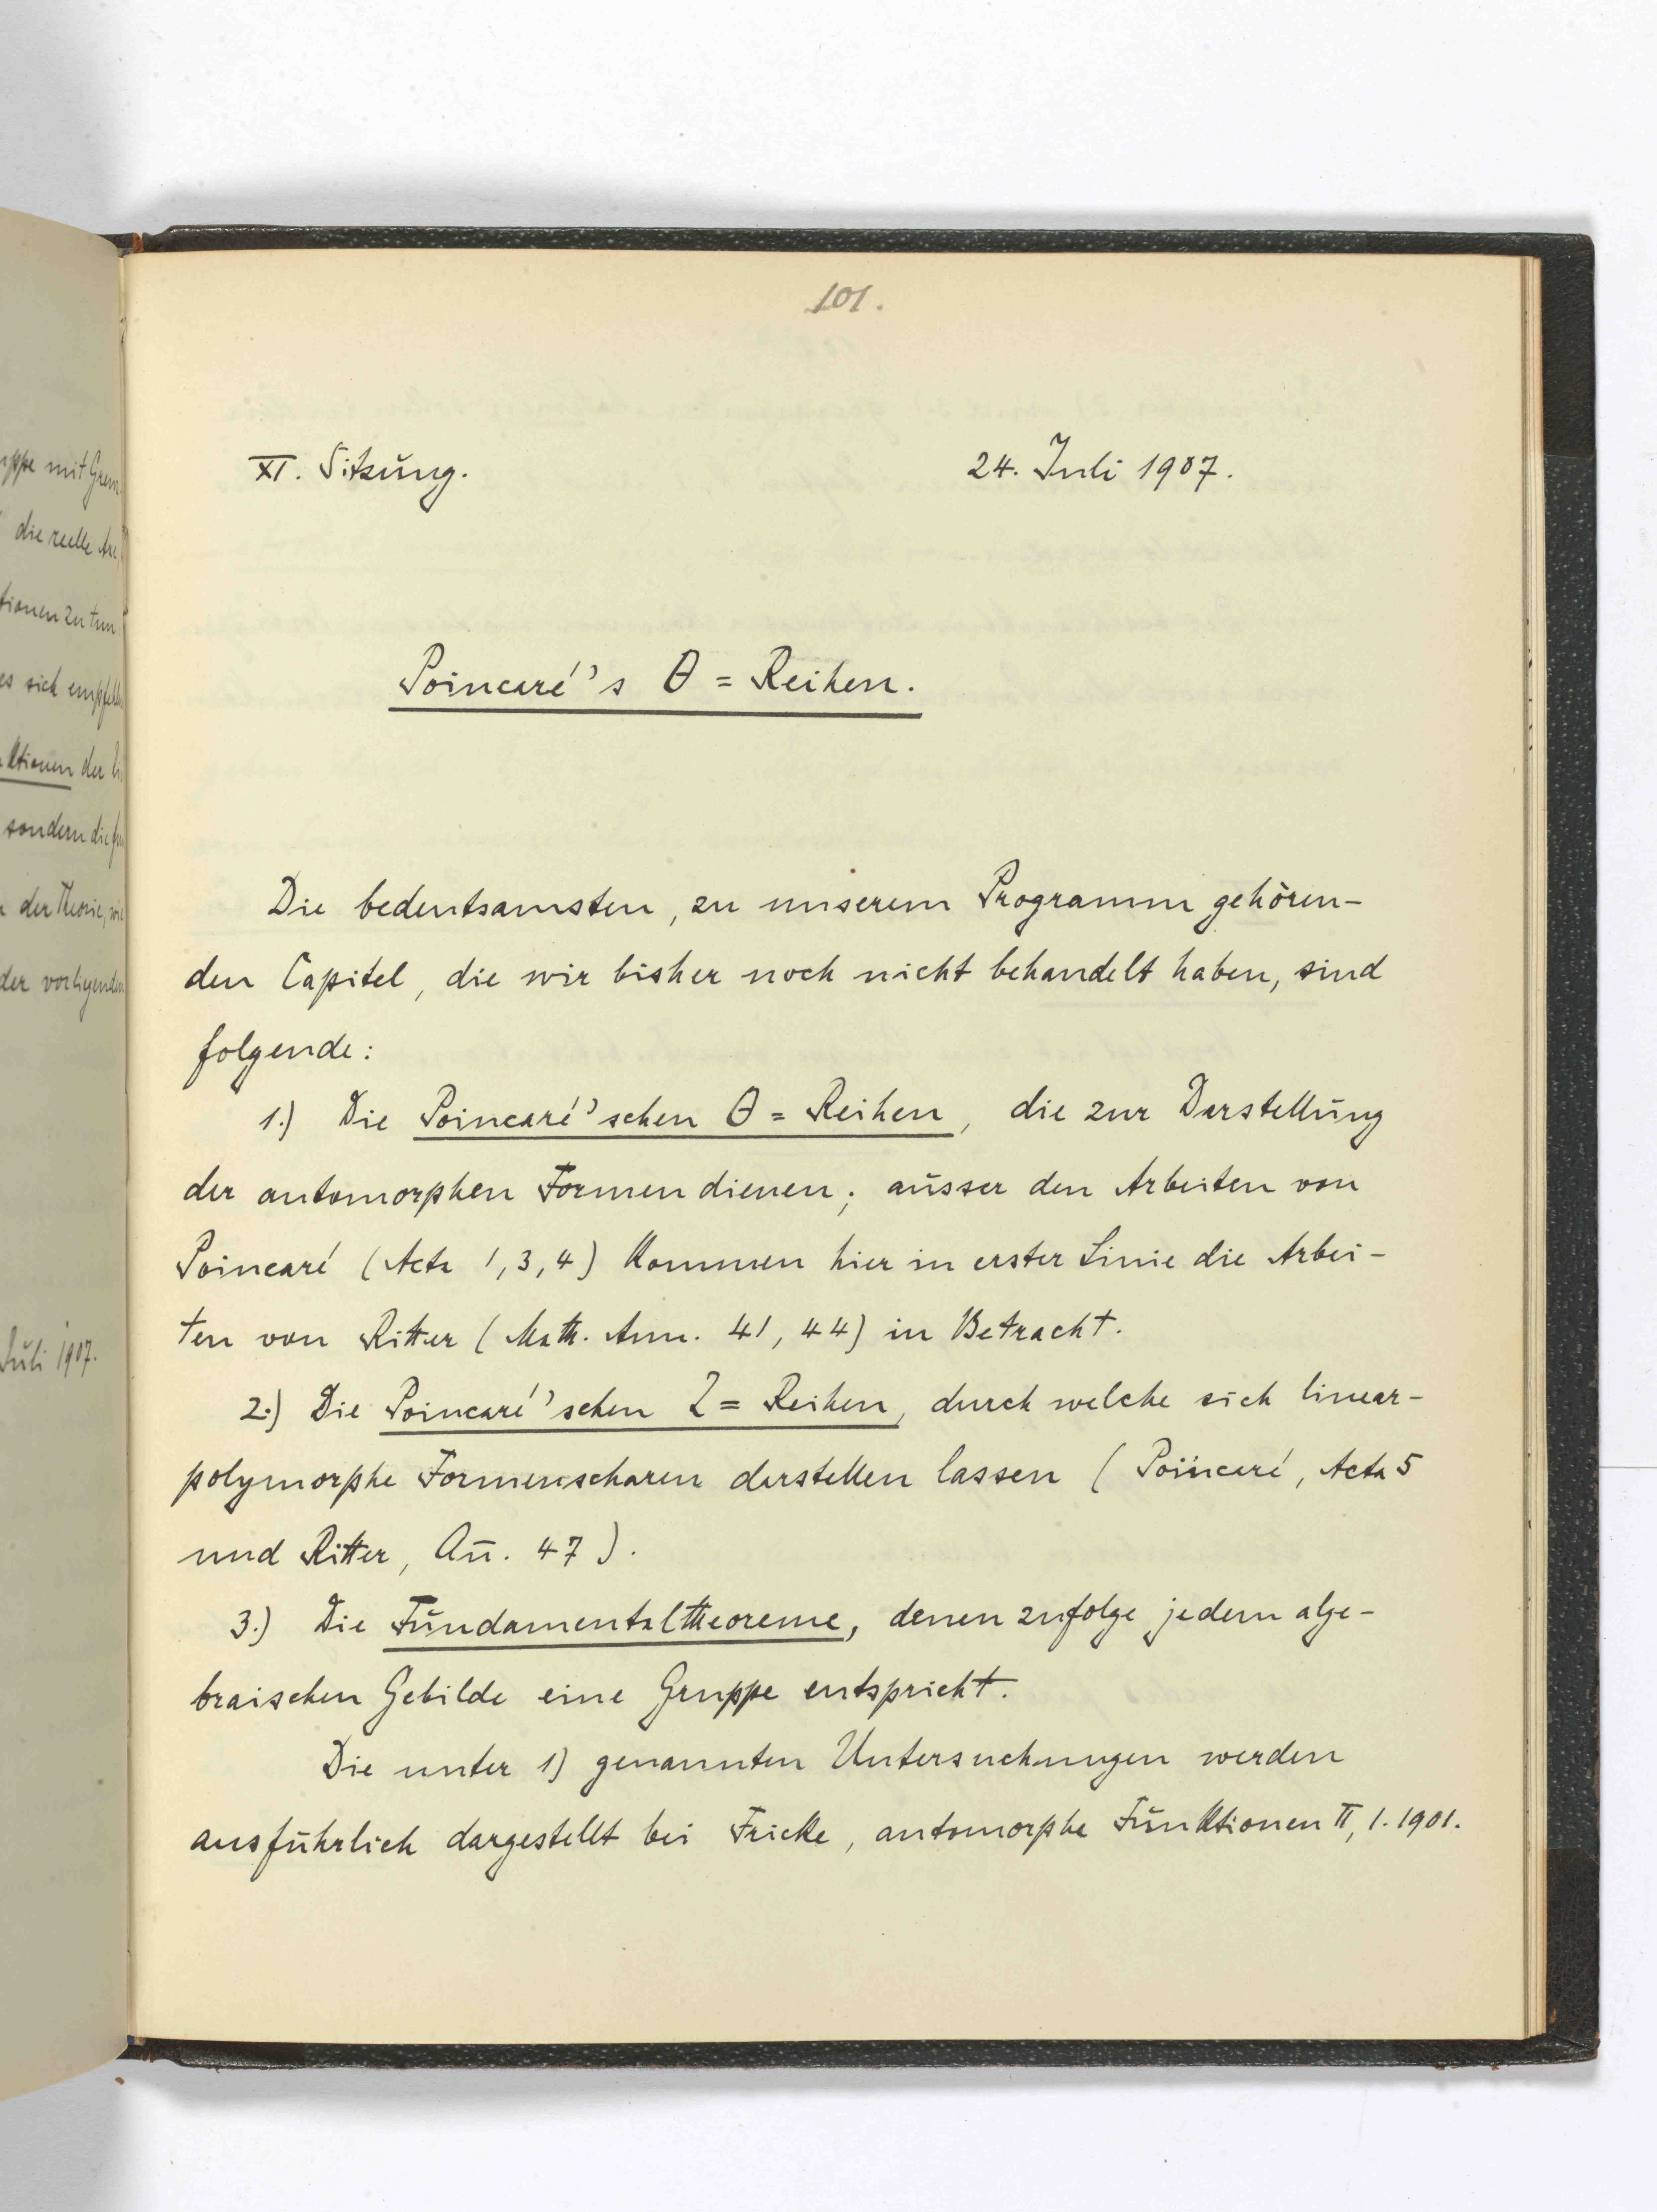 uppe mit
die reelle
tionen zu tun
es sich
ktionen der
sondern die
der Theorie, wie
der vorliegenden
Juli 1907.
101.
XI. Sitzung. 24. Juli 1907.
Poincaré's θ = Reihen.
Die bedeutsamsten, zu unserem Programm gehören-
den Capitel, die wir bisher noch nicht behandelt haben, sind
folgende:
1.) Die Poincaré'schen θ = Reihen, die zur Darstellung
der automorphen Formen dienen; ausser den Arbeiten von
Poincaré (Acta 1, 3, 4) kommen hier in erster Linie die Arbei-
ten von Ritter (Math. Ann. 41, 44) in Betracht.
2.) Die Poincaré'schen Z = Reihen, durch welche sich linear-
polymorphe Formenscharen darstellen lassen (Poincaré, Acta 5
und Ritter, An̄. 47).
3.) Die Fundamentaltheoreme, denen zufolge jedem alge-
braischen Gebilde eine Gruppe entspricht.
Die unter 1) genannten Untersuchungen werden
ausführlich dargestellt bei Fricke, automorphe Funktionen II, 1. 1901.